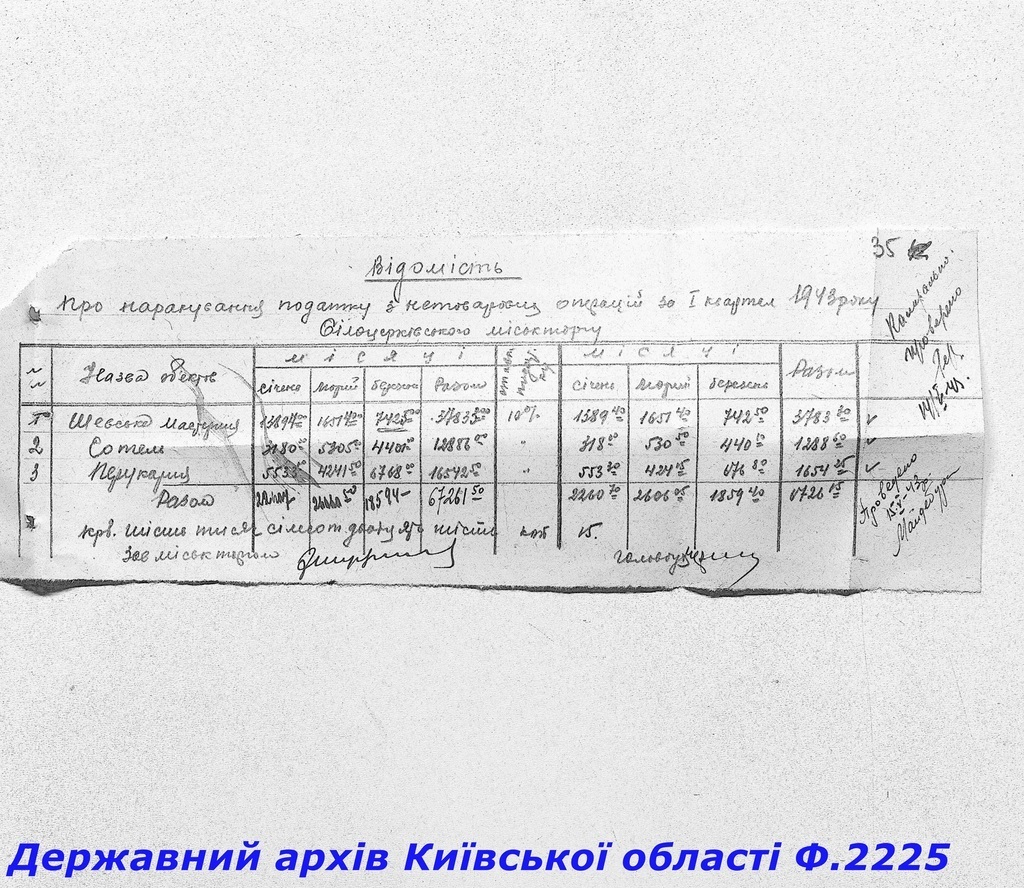 35
Відомість
Про нарахування податку з нетоварових операцій за I квартал 1943 року
Білоцерківського міськторгу
Камерально
проверено
14/V-43.
№ № Назва обєктів місяці ставка податку місяці Разом
січень лютий березень Разом січень лютий березень
1 Шевська Майстерня 13894 00 16514 00 7425 00 37833 00 10% 1389 40 1651 40 742 50 3783 30 ✓
2 Готель 3180 00 5305 00 4401 00 12886 00 " 318 00 530 50 440 10 1288 60 ✓
3 Перукарня 5533 00 4241 50 6768 00 16542 50 " 553 30 424 15 676 80 1654 25 ✓
Разом 18594- 67261 50 2260 70 2606 05 1859 40 6726 15
Проверено
15-V-43
крв. шість тисяч сімсот двадцять шість коп 15.
Зав міськторгом Головбух
Державний архів Київської області Ф.2225